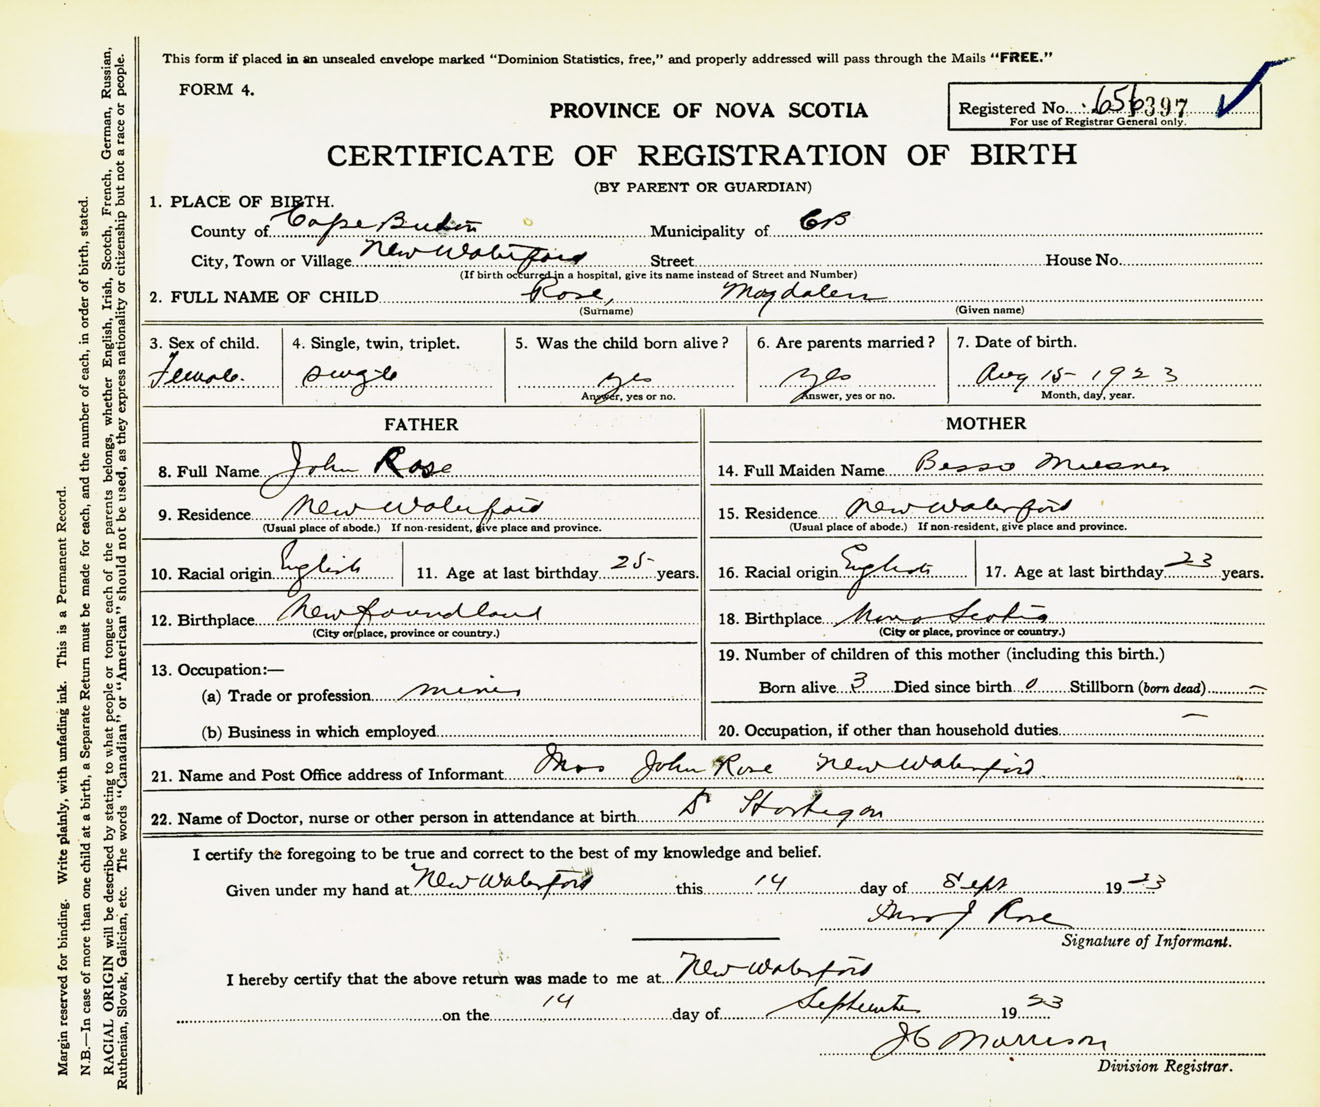 This form if placed in an unsealed envelope marked "Dominion Statistics, free," and properly addressed will pass through the Mails "FREE."
FORM 4.
PROVINCE OF NOVA SCOTIA
Registered No. 397
For use of Registrar General only.
CERTIFICATE OF REGISTRATION OF BIRTH
(BY PARENT OR GUARDIAN)
1. PLACE OF BIRTH.
County of Cape Breton Municipality of CB
City, Town or Village New Waterford Street House No.
(If birth occurred in a hospital, give its name instead of Street and Number)
2. FULL NAME OF CHILD Rose, Magdalen
(Surname) (Given name)
3. Sex of child. 4. Single, twin, triplet. 5. Was the child born alive? 6. Are parents married? 7. Date of birth.
Female. single yes yes Aug 15 - 1923
Answer, yes or no. Answer, yes or no. Month, day, year.
FATHER MOTHER
8. Full Name John Rose 14. Full Maiden Name
9. Residence New Waterford 15. Residence New Waterford
(Usual place of abode.) If non-resident, give place and province. (Usual place of abode.) If non-resident, give place and province.
10. Racial origin English 11. Age at last birthday 25 years. 16. Racial origin English 17. Age at last birthday 23 years.
12. Birthplace Newfoundland 18. Birthplace Nova Scotia
(City or place, province or country.) (City or place, province or country.)
13. Occupation:— 19. Number of children of this mother (including this birth.)
(a) Trade or profession miner Born alive 3 Died since birth 0 Stillborn (born dead) —
(b) Business in which employed 20. Occupation, if other than household duties —
21. Name and Post Office address of Informant Mrs John Rose New Waterford
22. Name of Doctor, nurse or other person in attendance at birth Dr
I certify the foregoing to be true and correct to the best of my knowledge and belief.
Given under my hand at New Waterford this 14 day of Sept 1923
Mrs J Rose
Signature of Informant.
I hereby certify that the above return was made to me at New Waterford
on the 14 day of September 1923
J C Morrison
Division Registrar.
Margin reserved for binding. Write plainly, with unfading ink. This is a Permanent Record.
N.B.—In case of more than one child at a birth, a Separate Return must be made for each, and the number of each, in order of birth, stated.
RACIAL ORIGIN will be described by stating to what people or tongue each of the parents belongs, whether English, Irish, Scotch, French, German, Russian,
Ruthenian, Slovak, Galician, etc. The words "Canadian" or "American" should not be used, as they express nationality or citizenship but not a race or people.